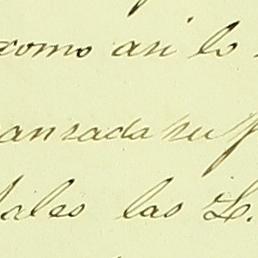 como asi lo
ansada su
ales las L.